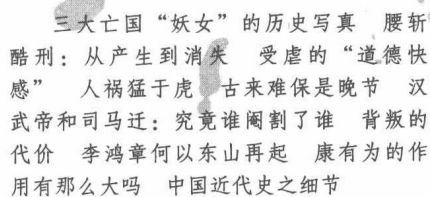 三大亡国“妖女”的历史写真 腰斩
酷刑：从产生到消失 受虐的“道德快
感” 人祸猛于虎 古来难保是晚节 汉
武帝和司马迁：究竟谁阉割了谁 背叛的
代价 李鸿章何以东山再起 康有为的作
用有那么大吗 中国近代史之细节